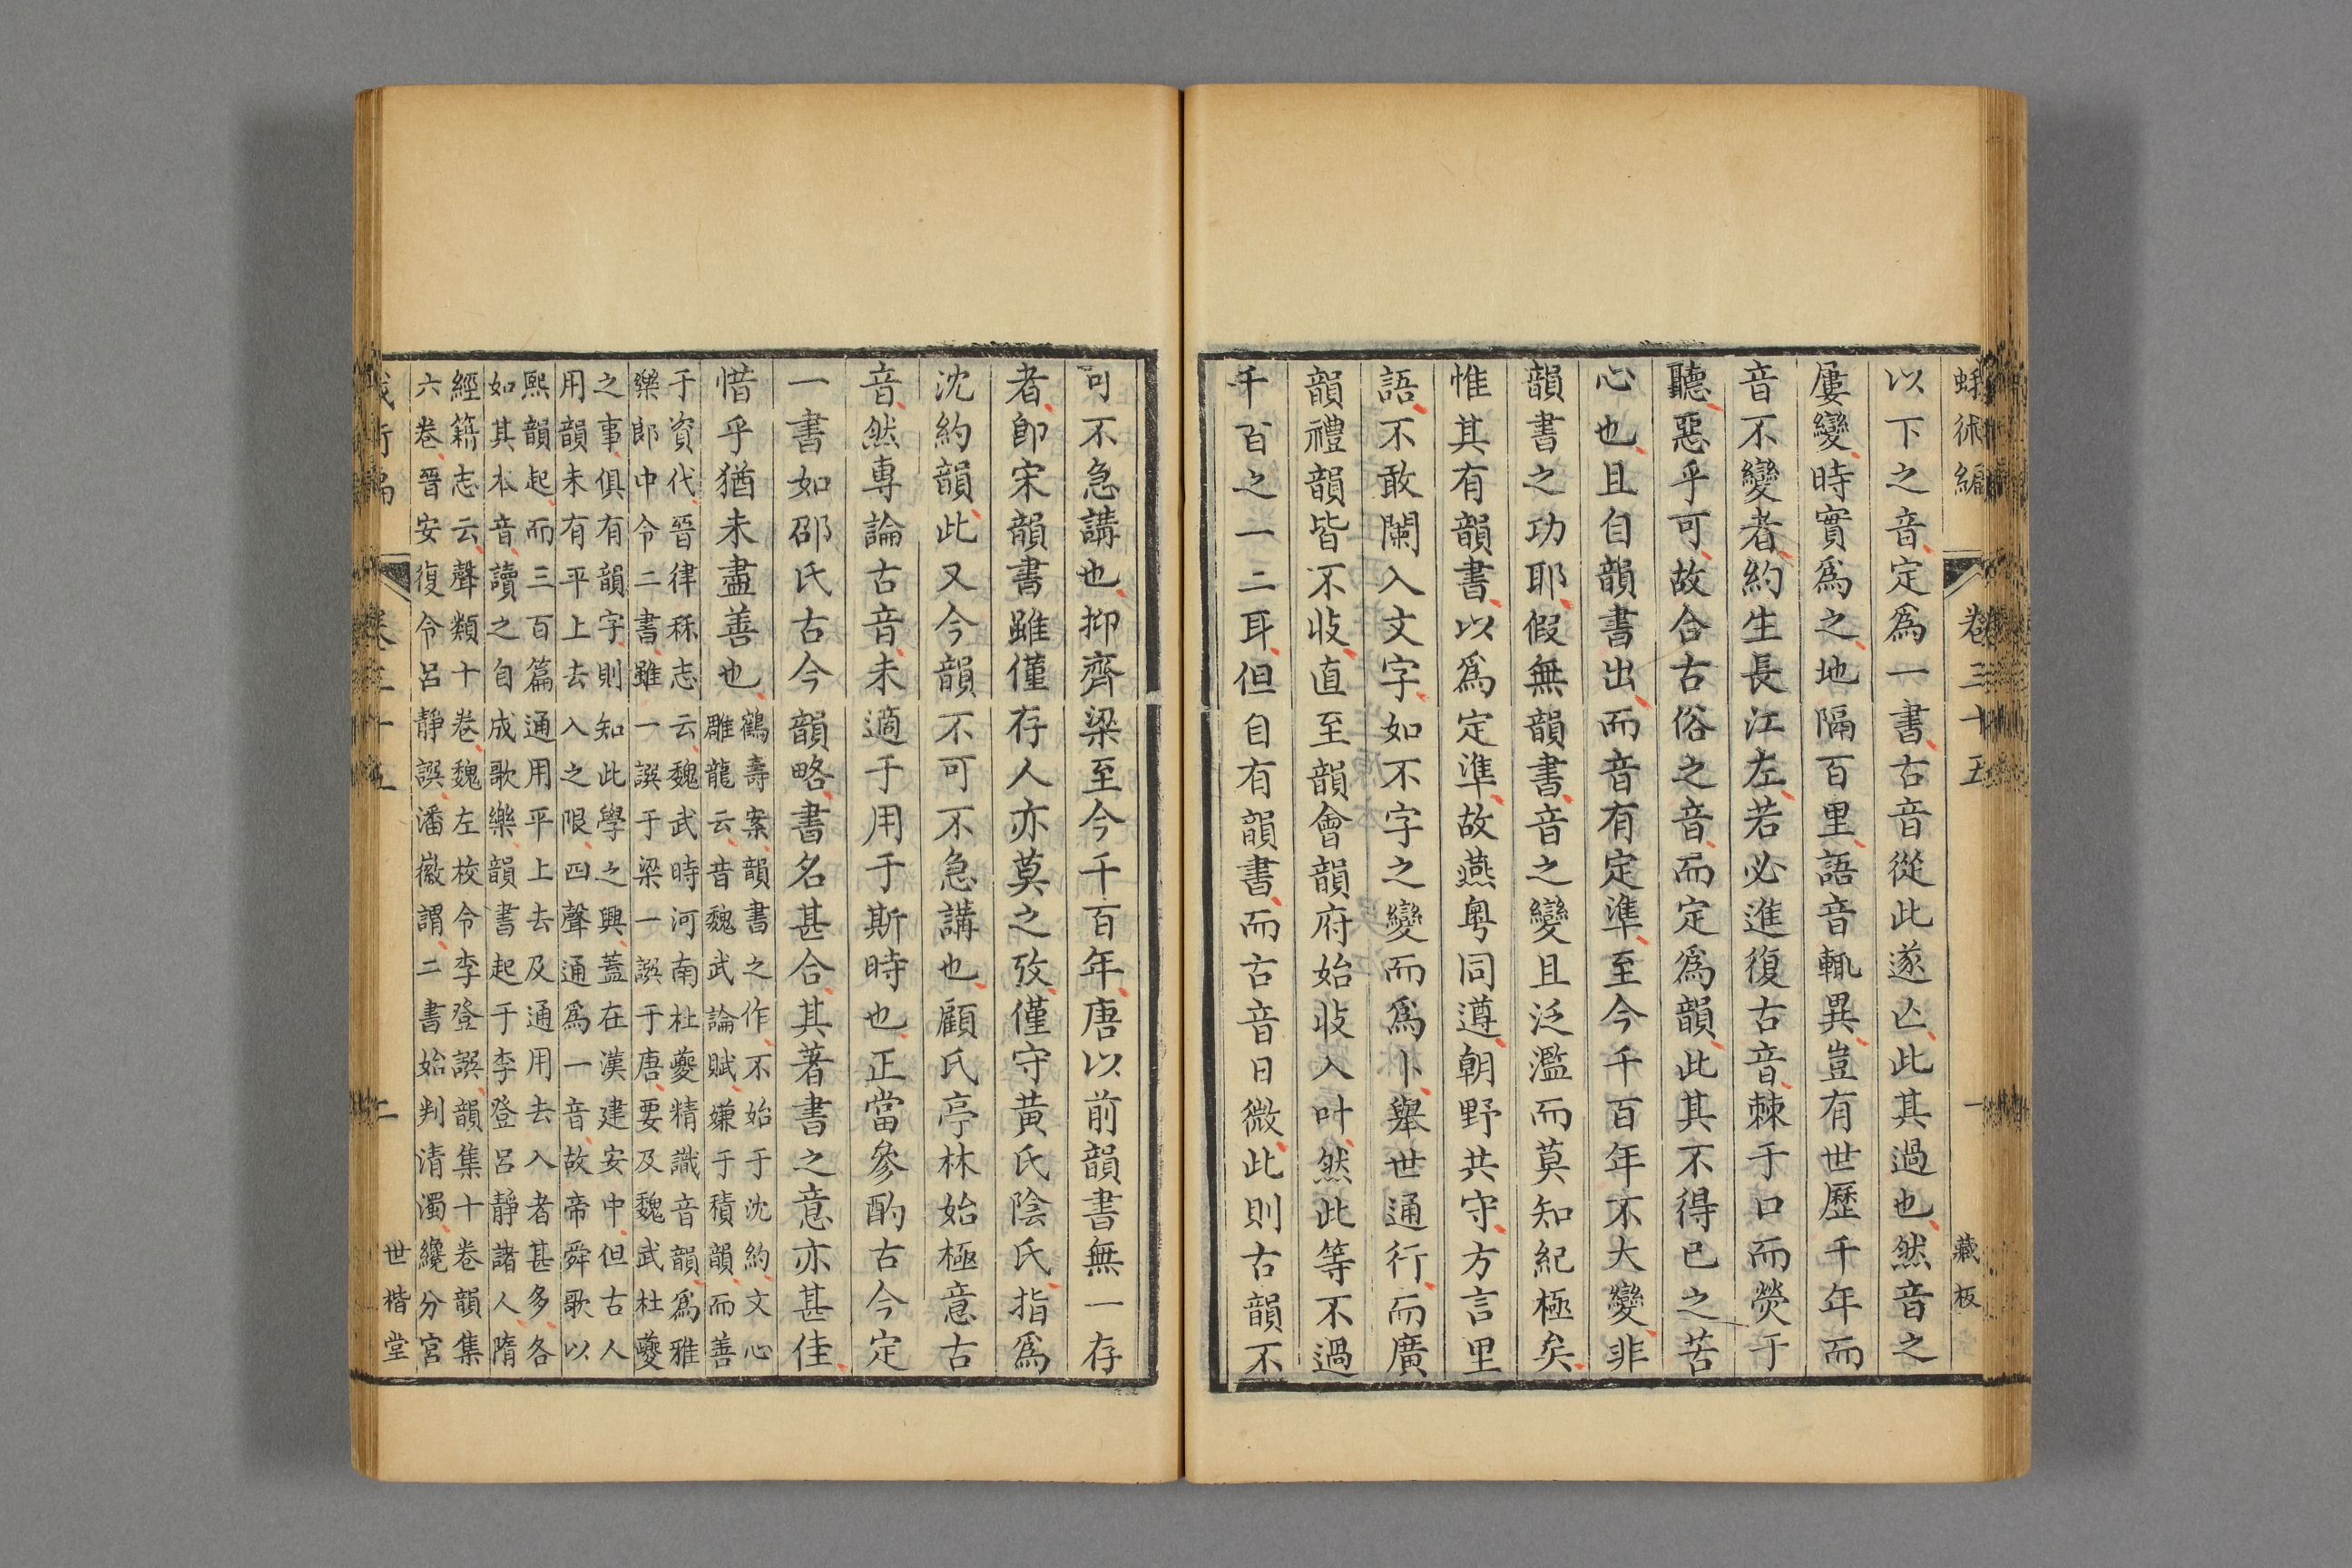 蛾術編 卷三十五 一 藏板
以下之音定爲一書古音從此遂亾此其過也然音之
屢變時實爲之地隔百里語音輒異豈有世歷千年而
音不變者約生長江左若必進復古音棘于口而熒于
聽惡乎可故合古俗之音而定爲韻此其不得已之苦
心也且自韻書出而音有定準至今千百年不大變非
韻書之功耶假無韻書音之變且泛濫而莫知紀極矣
惟其有韻書以爲定準故燕粤同遵朝野共守方言里
語不敢闌入文字如不字之變而爲卜舉世通行而廣
韻禮韻皆不收直至韻會韻府始收入叶然此等不過
千百之一二耳但自有韻書而古音日微此則古韻不
可不急講也抑齊梁至今千百年唐以前韻書無一存
者卽宋韻書雖僅存人亦莫之攷僅守黃氏陰氏指爲
沈約韻此又今韻不可不急講也顧氏亭林始極意古
音然專論古音未適于用于斯時也正當參酌古今定
一書如邵氏古今韻略書名甚合其著書之意亦甚佳
惜乎猶未盡善也
鶴壽案韻書之作不始于沈約文心
雕龍云昔魏武論賦嫌于積韻而善
于資代晉律秝志云魏武時河南杜夔精識音韻爲雅
樂郎中令二書雖一譔于梁一譔于唐要及魏武杜夔
之事俱有韻字則知此學之興蓋在漢建安中但古人
用韻未有平上去入之限四聲通爲一音故帝舜歌以
熙韻起而三百篇通用平上去及通用去入者甚多各
如其本音讀之自成歌樂韻書起于李登呂靜諸人隋
經籍志云聲類十卷魏左校令李登譔韻集十卷韻集
六卷晉安復令呂靜譔潘徽謂二書始判清濁纔分宮
蛾術編 卷三十五 二 世楷堂